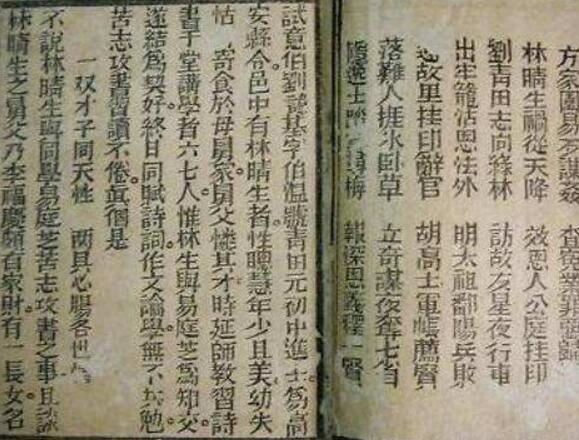 方家園易友謀奸
林晴生禍從天降 效恩人公庭挂印
劉青田志向綠林 訪故友星夜行車
出牢籠沾恩法外 明太祖鄱陽兵敗
故里挂印辭官 胡高士軍帳薦賢
落難人捱氷臥草 立奇謀夜奪七省
士踏 尋梅 報深恩義釋一賢
試意伯劉諱基字伯溫號青田元初中進士爲高
安縣令邑中有林晴生者。性聰慧年少且美幼失
怙 寄食於母舅家。舅父憐其才。時延師教習詩
書于堂講學者六七人。惟林生與易庭芝爲知交。
遂結爲契好。終日同賦詩詞。作文論學。無不共勉。
苦志攻書習讀不倦。眞個是
一双才子同天性 兩具心腸各世
不說林晴生與同學易庭芝苦志攻書之事。且談
林晴生之舅父乃李福慶頗有家財。有一長女名